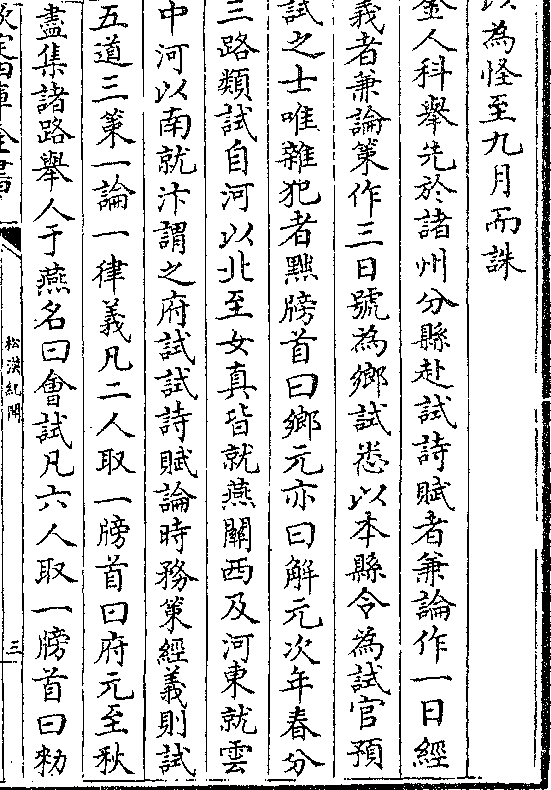 以為怪至九月而誅
金人科舉先於諸州分縣赴試詩賦者兼論作一日經
義者兼論策作三日號為鄉試悉以本縣令為試官預
試之士唯雜犯者黜牓首曰鄉元亦曰解元次年春分
三路類試自河以北至女真皆就燕關西及河東就雲
中河以南就汴謂之府試試詩賦論時務策經義則試
五道三策一論一律義凡二人取一牓首曰府元至秋
盡集諸路舉人于燕名曰會試凡六人取一牓首曰勑
欽定四庫全書
松漠紀聞
三